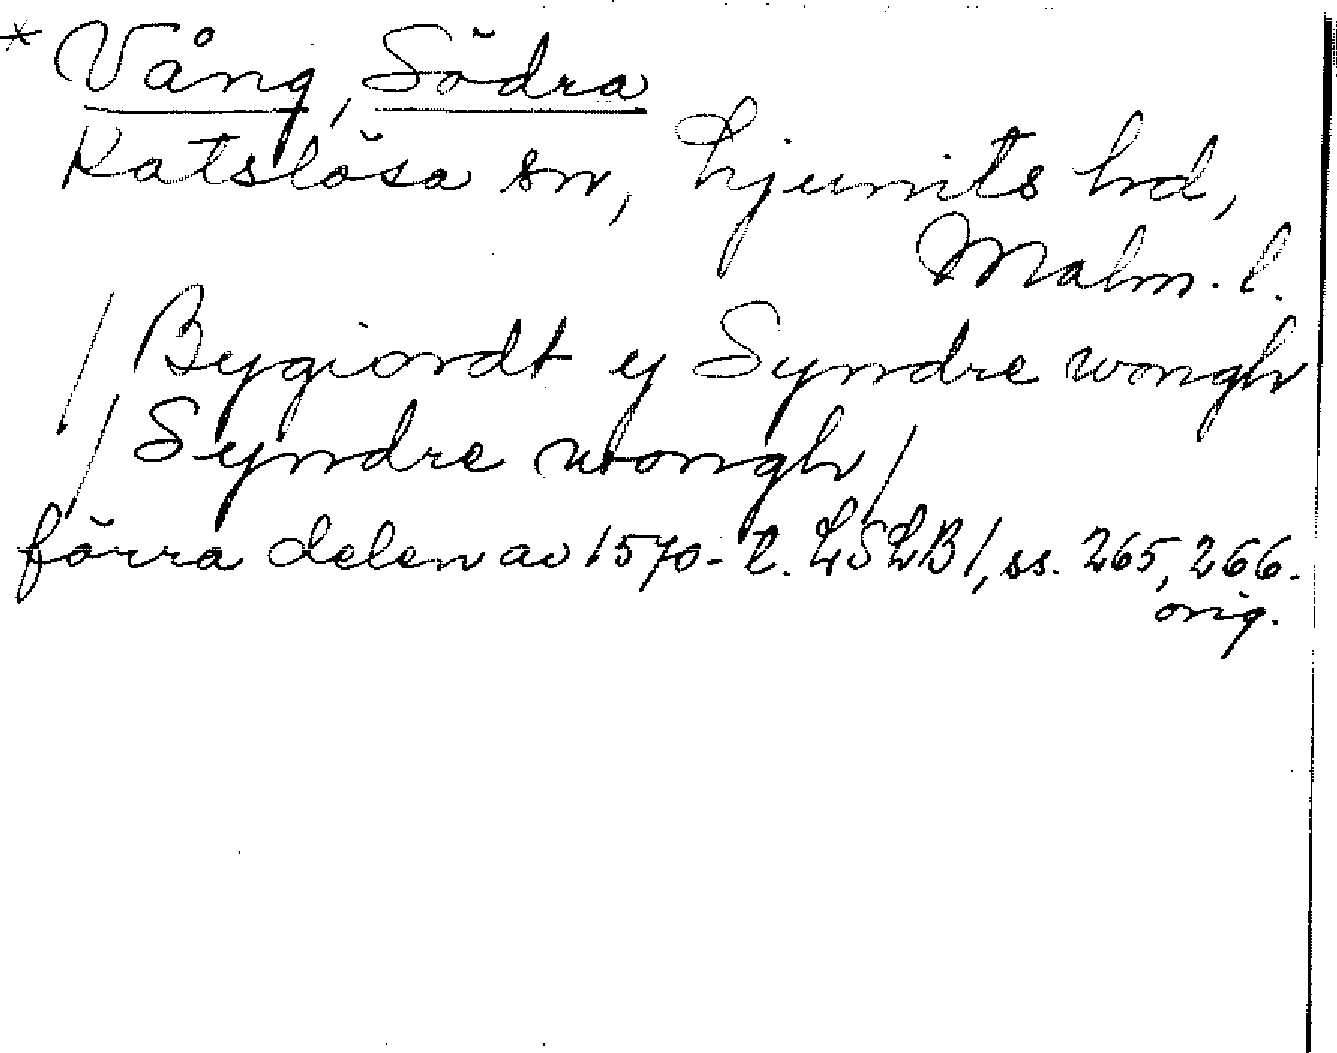 * Vång, Södra
Katslösa sn, Ljunits hd,
Malm. l.
/ Bygiordt y Syndre wongh
/ Syndre wongh /
förra delen av 1570-t. LSLB1, ss. 265, 266.
orig.